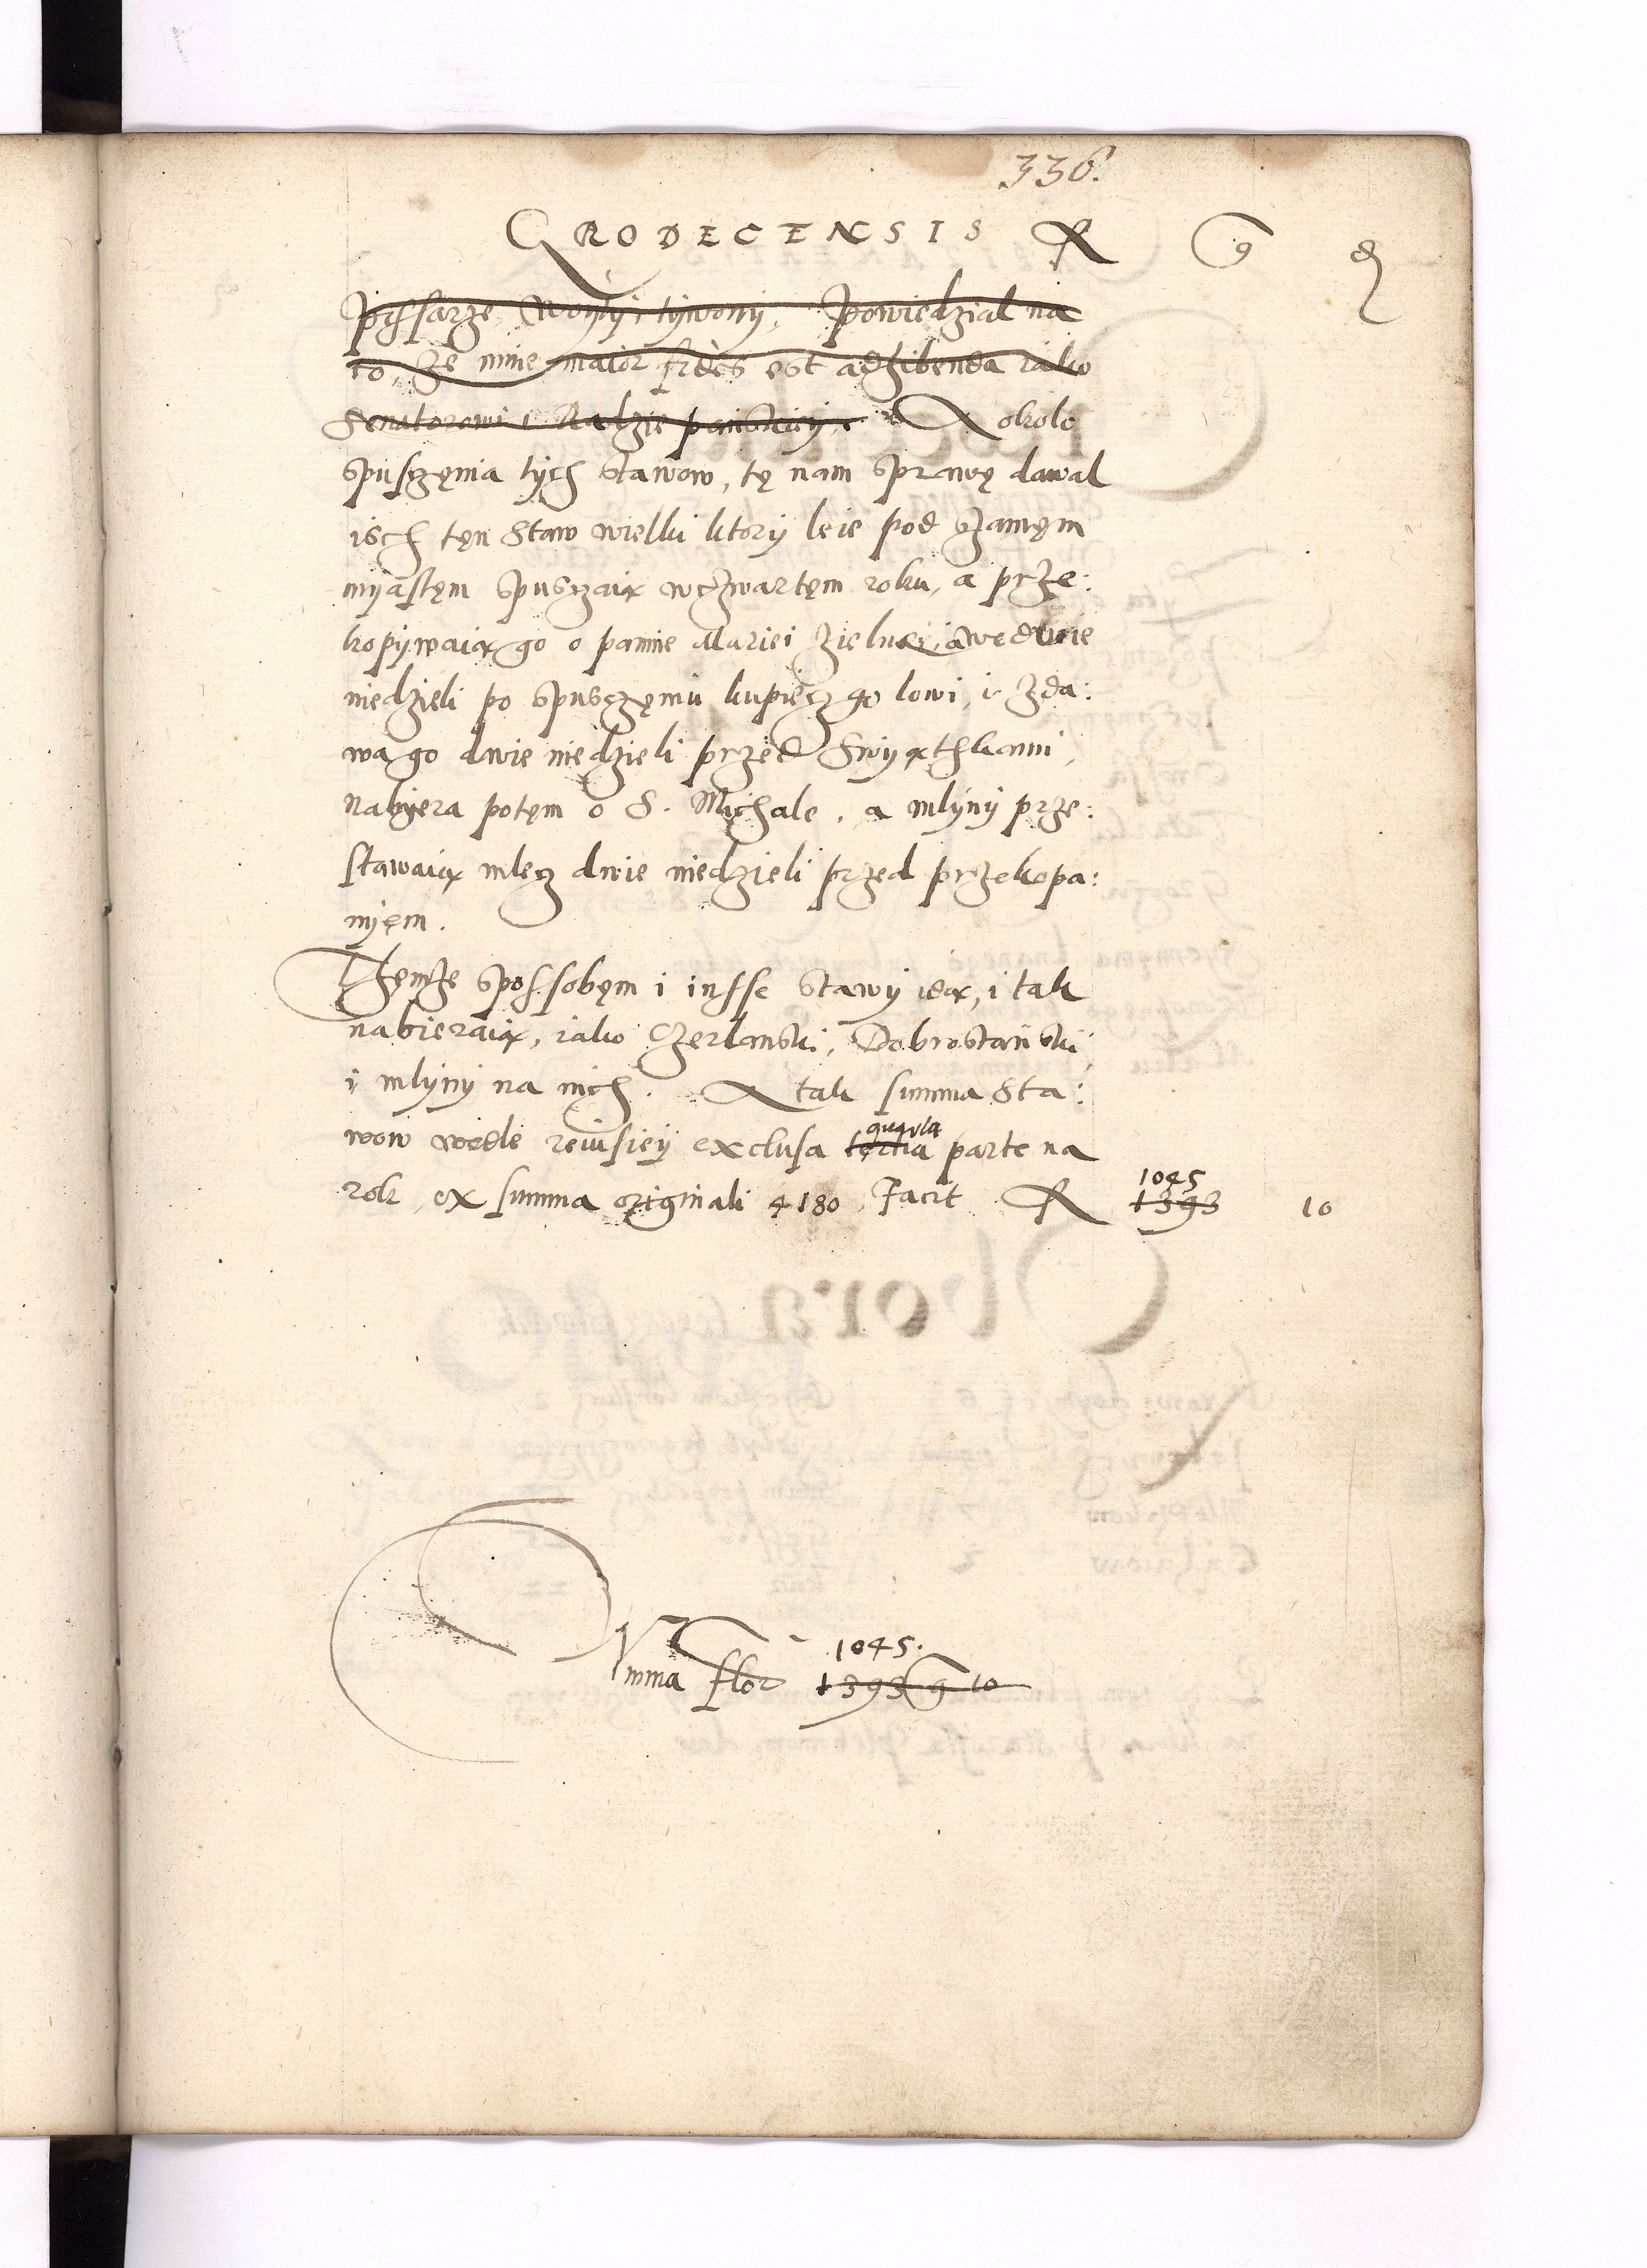 336.
GRODECENSIS R g d
pissarze, Woyty i tywony, Powiedzial na
to, że mnie maior fides est adhibenda iako
Senatorowi i Radzie pańskiey. A około
spusczęnia tych stawow, tę nam sprawę dawal
isch tęn Staw wielki ktory leie pod szamęm
myastęm spusczaią wczwartęm roku, a prze:
kopywaią go o pannie Mariei Zielney, a we dwie
niedzieli po spusczęniu kupiecz go lowi, i zda:
wa go dwie niedzieli przed Swyąthkami,
nabyera potęm o S. Michale, a mlyny prze:
stawaią mlecz dwie niedzieli przed przekopa:
nyęm.
Tęmże spossobęm i insse stawy idą, i tak
nabieraią, iako Czerlanski, Dobrostański
i mlyny na nich. A tak summa Sta:
wow wedle reiusiey exclusa tertia quarta parte na
rok, ex summa originali 4180, Facit R 1393 1045 10
Summa flor 1045.
1393 g 10